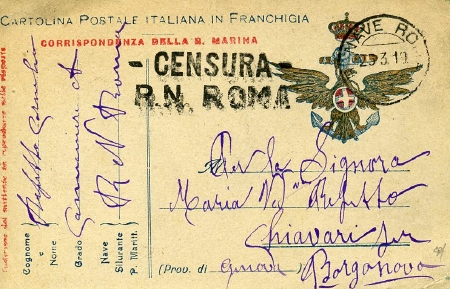 CARTOLINA POSTALE ITALIANA IN FRANCHIGIA
CORRISPONDENZA DELLA R. MARINA
- CENSURA -
R.N. ROMA
NAVE RO
25.3.19
Indirizzo del mittente da riprodurre nella risposta
Cognome e Nome Refetto
Grado Cannoniere A
Nave Silurante P. Maritt. R N Roma
Per la Signora
Maria Va Refetto
Chiavari per
(Prov. di Genova) Borgonovo